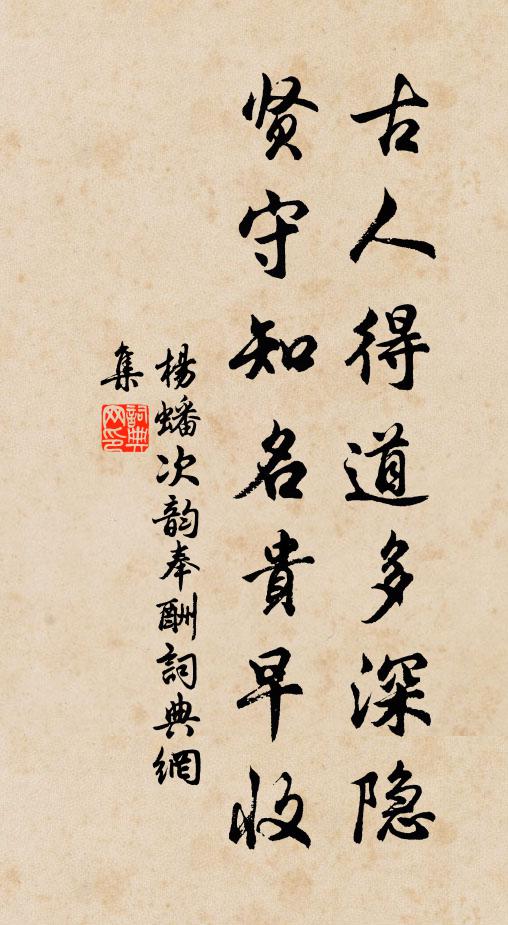 古人得道多深隐
贤守知名貴早收
楊蟠次韵奉酬詞典網
集
詞典网印